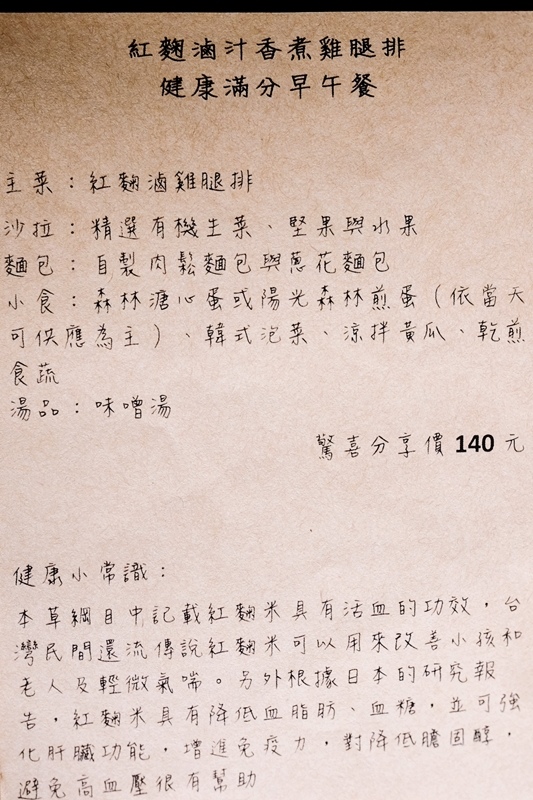 紅麴滷汁香煮雞腿排
健康滿分早午餐
主菜：紅麴滷雞腿排
沙拉：精選有機生菜、堅果與水果
麵包：自製肉鬆麵包與蔥花麵包
小食：森林溏心蛋或陽光森林煎蛋（依當天
可供應為主）、韓式泡菜、涼拌黃瓜、乾煎
食蔬
湯品：味噌湯
驚喜分享價 140 元
健康小常識：
本草綱目中記載紅麴米具有活血的功效，台
灣民間還流傳說紅麴米可以用來改善小孩和
老人及輕微氣喘。另外根據日本的研究報
告，紅麴米具有降低血脂肪、血糖，並可強
化肝臟功能，增進免疫力，對降低膽固醇，
避免高血壓很有幫助